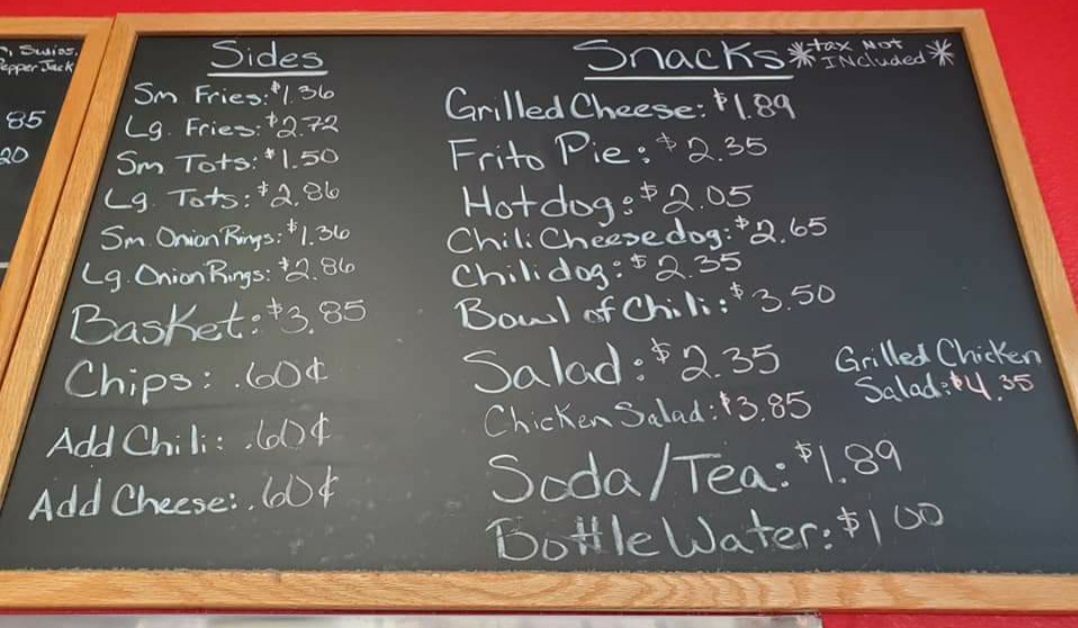 Swiss,
Pepper Jack
85
20
Sides
Sm Fries: $1.36
Lg. Fries: $2.72
Sm Tots: $1.50
Lg. Tots: $2.86
Sm. Onion Rings: $1.36
Lg. Onion Rings: $2.86
Basket: $3.85
Chips: .60¢
Add Chili: .60¢
Add Cheese: .60¢
Snacks *tax Not
INcluded *
Grilled Cheese: $1.89
Frito Pie: $2.35
Hotdog: $2.05
Chili Cheesedog: $2.65
Chilidog: $2.35
Bowl of Chili: $3.50
Salad: $2.35
Grilled Chicken
Salad: $4.35
Chicken Salad: $3.85
Soda/Tea: $1.89
Bottle Water: $1 00